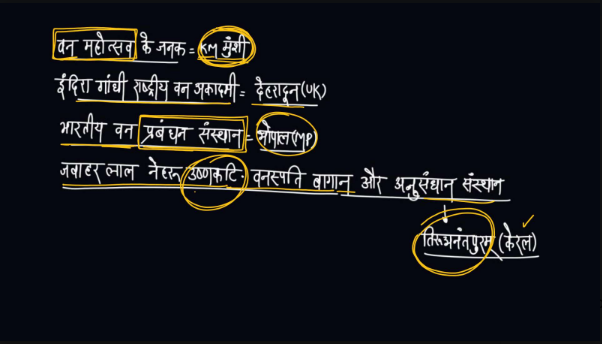 वन महोत्सव के जनक = KM मुंशी
इंदिरा गांधी राष्ट्रीय वन अकादमी = देहरादून (UK)
भारतीय वन प्रबंधन संस्थान = भोपाल (MP)
जवाहर लाल नेहरू उष्णकटि. वनस्पति बागान और अनुसंधान संस्थान
तिरूअनंतपुरम (केरल)